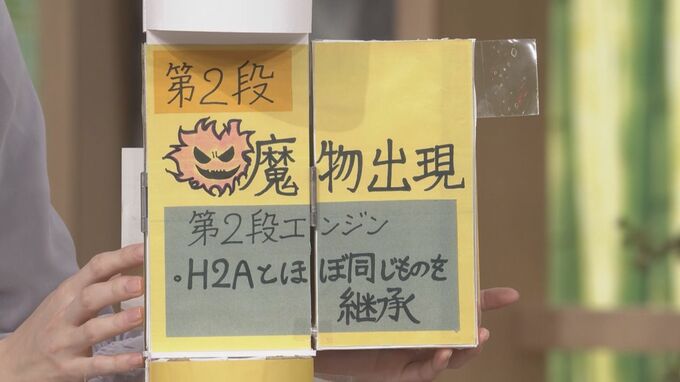 第2段
魔物出現
第2段エンジン
・H2Aとほぼ同じものを
継承